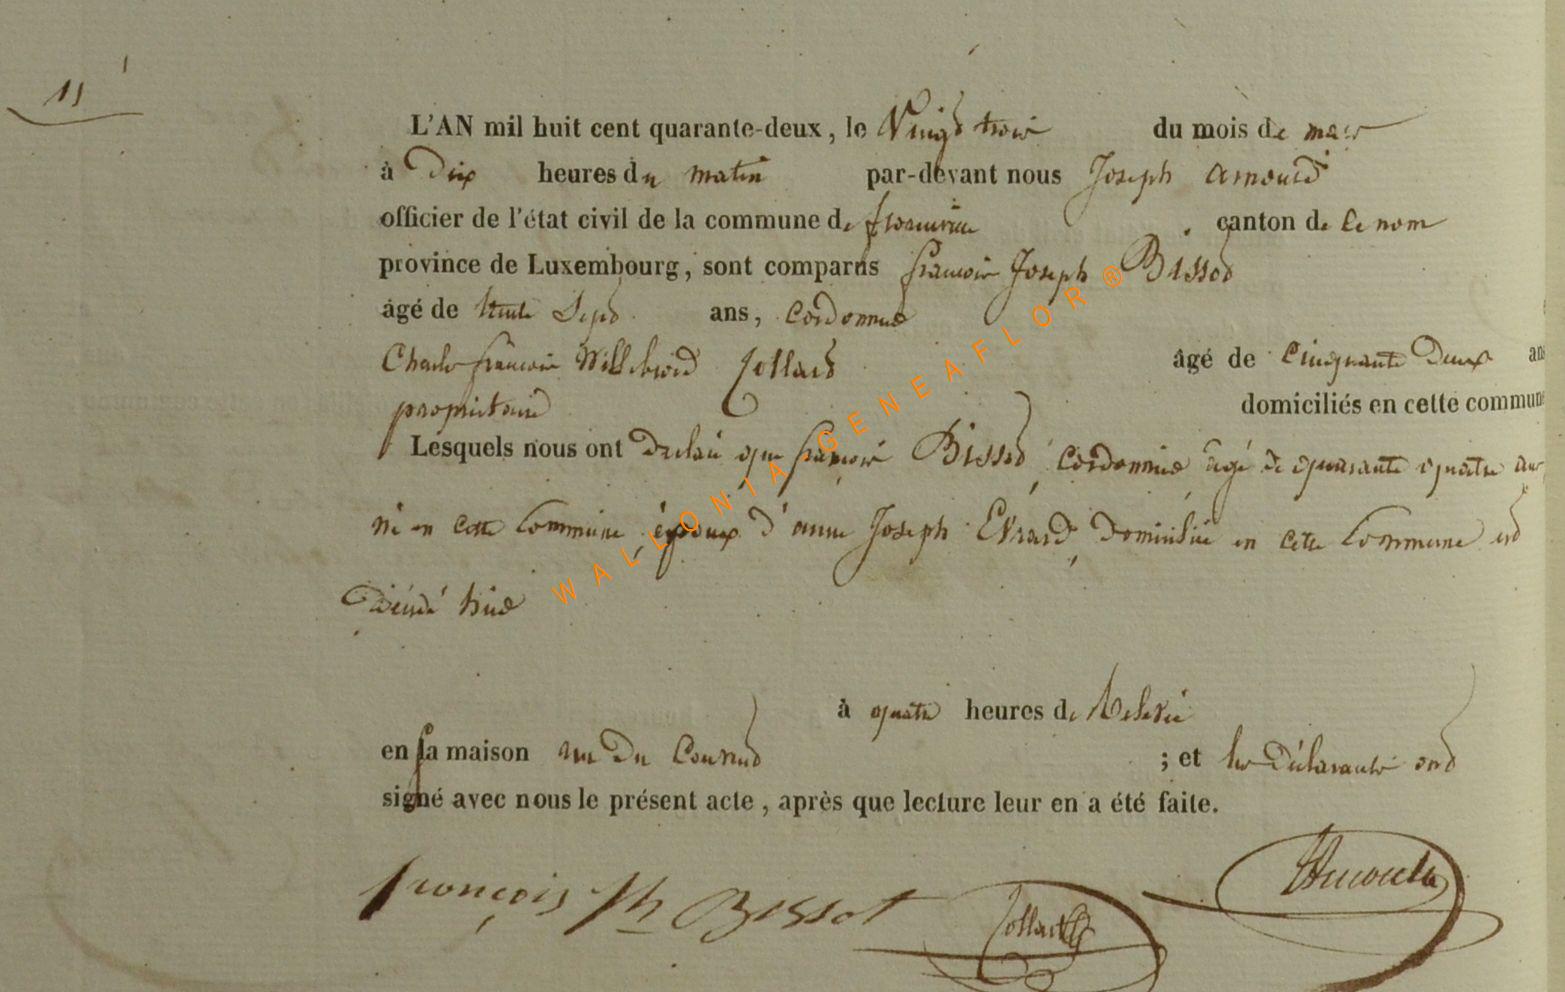 11
L'AN mil huit cent quarante-deux, le Vingt trois du mois de mars
à Dix heures du matin par-devant nous Joseph Arnould
officier de l'état civil de la commune de florenville canton de
province de Luxembourg, sont comparus françois Joseph Bissot
âgé de trente Sept ans, Cordonnier
Charles françois Willebrord Collard âgé de Cinquante Deux ans
propriétaire domiciliés en cette commune
Lesquels nous ont Déclaré que françois Bissot, Cordonnier âgé de quarante quatre ans
né en cette Commune, époux d'anne Joseph Evrard, Domicilié en cette Commune est
Décédé hier
à quatre heures de Relevée
en sa maison rue Du Couvent ; et les Déclarants ont
signé avec nous le présent acte, après que lecture leur en a été faite.
françois Jh Bissot Collard JArnould
WALLONIA GENEAFLOR ®